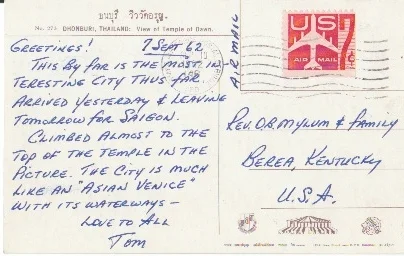 ธนบุรี วิววัดอรุณ
No. 973 DHONBURI, THAILAND: View of Temple of Dawn.
GREETINGS! 7 SEPT 62
THIS BY FAR IS THE MOST IN
TERESTING CITY THUS FAR.
ARRIVED YESTERDAY & LEAVING
TOMORROW FOR SAIGON.
CLIMBED ALMOST TO THE
TOP OF THE TEMPLE IN THE
PICTURE. THE CITY IS MUCH
LIKE AN "ASIAN VENICE"
WITH ITS WATERWAYS –
LOVE TO ALL
TOM
AIR MAIL
US
AIR MAIL
7¢
REV. O.B. MYLUM & FAMILY
BEREA, KENTUCKY
U.S.A.